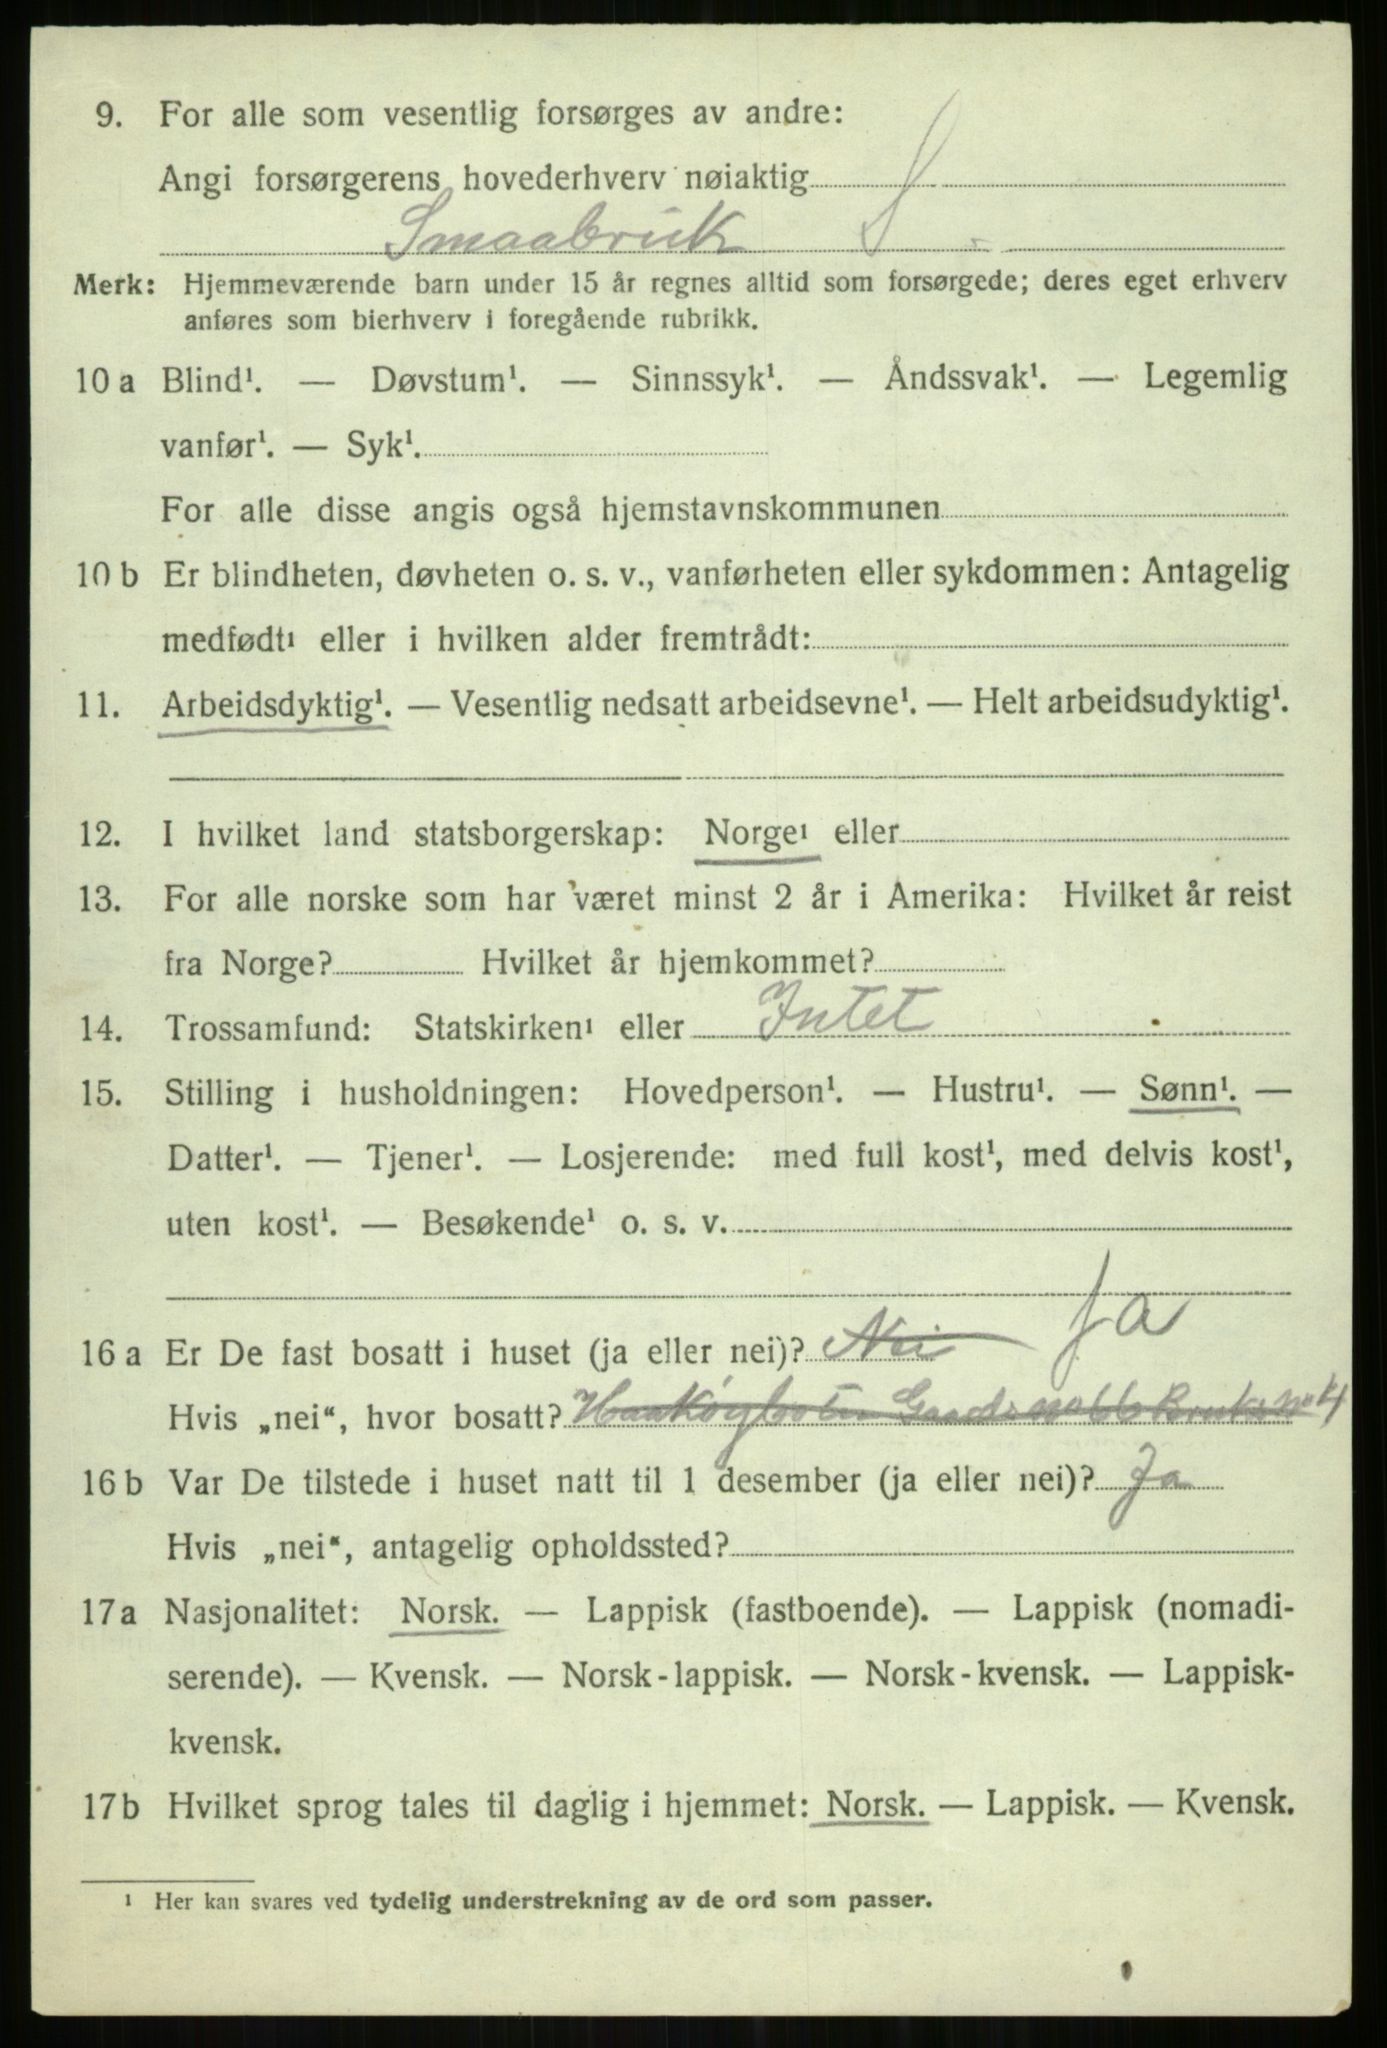 9. For alle som vesentlig forsørges av andre:
Angi forsørgerens hovederhverv nøiaktig
Smaabruk S
Merk: Hjemmeværende barn under 15 år regnes alltid som forsørgede; deres eget erhverv
anføres som bierhverv i foregående rubrikk.
10 a Blind¹. — Døvstum¹. — Sinnssyk¹. — Åndssvak¹. — Legemlig
vanfør¹. — Syk¹.
For alle disse angis også hjemstavnskommunen
10 b Er blindheten, døvheten o. s. v., vanførheten eller sykdommen: Antagelig
medfødt¹ eller i hvilken alder fremtrådt:
11. Arbeidsdyktig¹. — Vesentlig nedsatt arbeidsevne¹. — Helt arbeidsudyktig¹.
12. I hvilket land statsborgerskap: Norge¹ eller
13. For alle norske som har været minst 2 år i Amerika: Hvilket år reist
fra Norge? Hvilket år hjemkommet?
14. Trossamfund: Statskirken¹ eller Intet
15. Stilling i husholdningen: Hovedperson¹. — Hustru¹. — Sønn¹. —
Datter¹. — Tjener¹. — Losjerende: med full kost¹, med delvis kost¹,
uten kost¹. — Besøkende¹ o. s. v.
16 a Er De fast bosatt i huset (ja eller nei)? Nei Ja
Hvis „nei“, hvor bosatt? Haakøybotn Gaards no 66 Bruks no 4
16 b Var De tilstede i huset natt til 1 desember (ja eller nei)? Ja
Hvis „nei“, antagelig opholdssted?
17 a Nasjonalitet: Norsk. — Lappisk (fastboende). — Lappisk (nomadi-
serende). — Kvensk. — Norsk-lappisk. — Norsk-kvensk. — Lappisk-
kvensk.
17 b Hvilket sprog tales til daglig i hjemmet: Norsk. — Lappisk. — Kvensk.
¹ Her kan svares ved tydelig understrekning av de ord som passer.